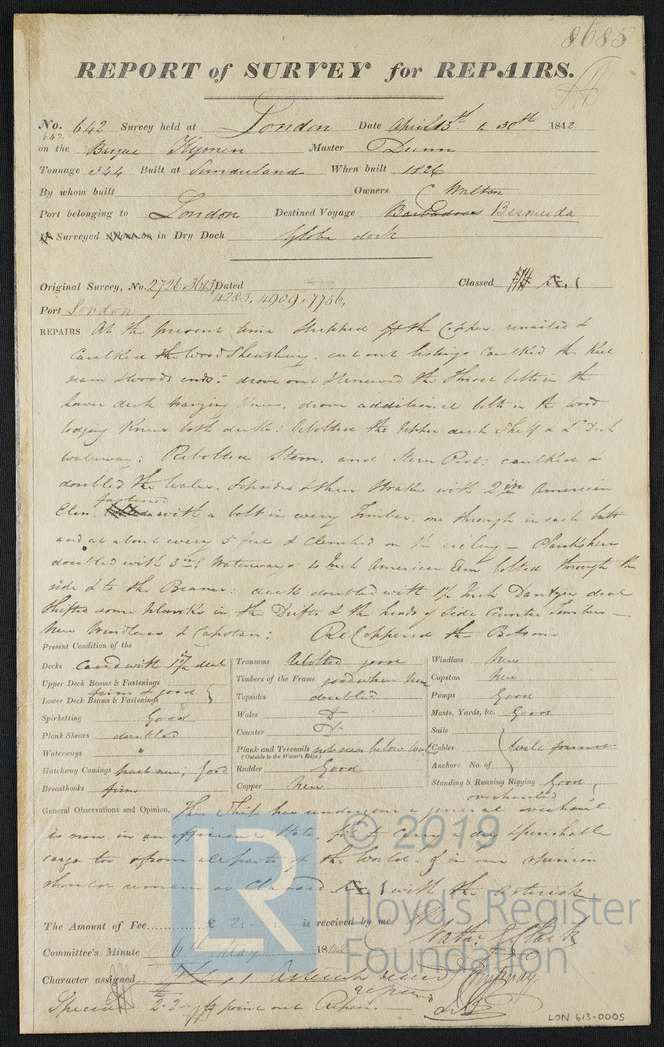 8685
REPORT of SURVEY for REPAIRS.
No. 642 Survey held at London Date April 13th & 30th 1842
on the Barque Hymen Master Dunn
Tonnage 344 Built at Sunderland When built 1826
By whom built Owners Walton
Port belonging to London Destined Voyage Barbadoes Bermuda
Surveyed in Dry Dock Globe dock
Original Survey, No. 2726, 3613 Dated Classed
4283, 4909, 7756,
Port London
REPAIRS At the present time stripped off the Copper, renailed &
Caulked the wood Sheathing, cut out listings Caulked the Keel
seam & woods ends; drove out & renewed the throat bolts in the
lower deck hanging Knees, drove additional bolts in the wood
lodging Knees both decks: Rebolted the Upper deck Shelf & Deck
waterway: Rebolted Stem, and Stern Post: caulked &
doubled the Wales, Topsides & three Strakes with 2 in American
Elm, fastened with a bolt in every Timber, one through in each butt
and at about every 5 feet & Clenched on the ceiling — Planksheer
doubled with 3 in: Waterways 4 Inch American Elm bolted through the
side & to the Beams: deck doubled with 1½ Inch Dantzic deal
Shifted some planks in the Drifts & the heads of Side Counter Timbers —
New Windlass & Capstan: ReCoppered the Bottom
Present Condition of the
Decks Cased with 1½ deal
Upper Deck Beams & Fastenings
firm & good
Lower Deck Beams & Fastenings
Spirketting Good
Plank Shears doubled
Waterways "
Hatchway Comings part new, Good
Breasthooks firm
Transoms Rebolted good
Timbers of the Frame good where seen
Topsides doubled
Wales Do
Counter Do
Plank and Treenails not seen below
(Outside to the Water's Edge)
Rudder Good
Copper New
Windlass New
Capstan New
Pumps Good
Masts, Yards, &c. Good
Sails
Cables
Anchors No. of
Standing & Running Rigging Good
overhauled
General Observations and Opinion, This Ship has undergone a general overhaul
is now in an efficient State, fit to carry a dry & perishable
cargo to & from all parts of the World. & in our opinion
should remain as Classed with the asterisk
The Amount of Fee £ 2 is received by me,
Committee's Minute 6th May 1842
Character assigned Asterisk
Special 2-2- point out Repairs
© 2019
LR
Lloyd's Register
Foundation
LON 613-0005